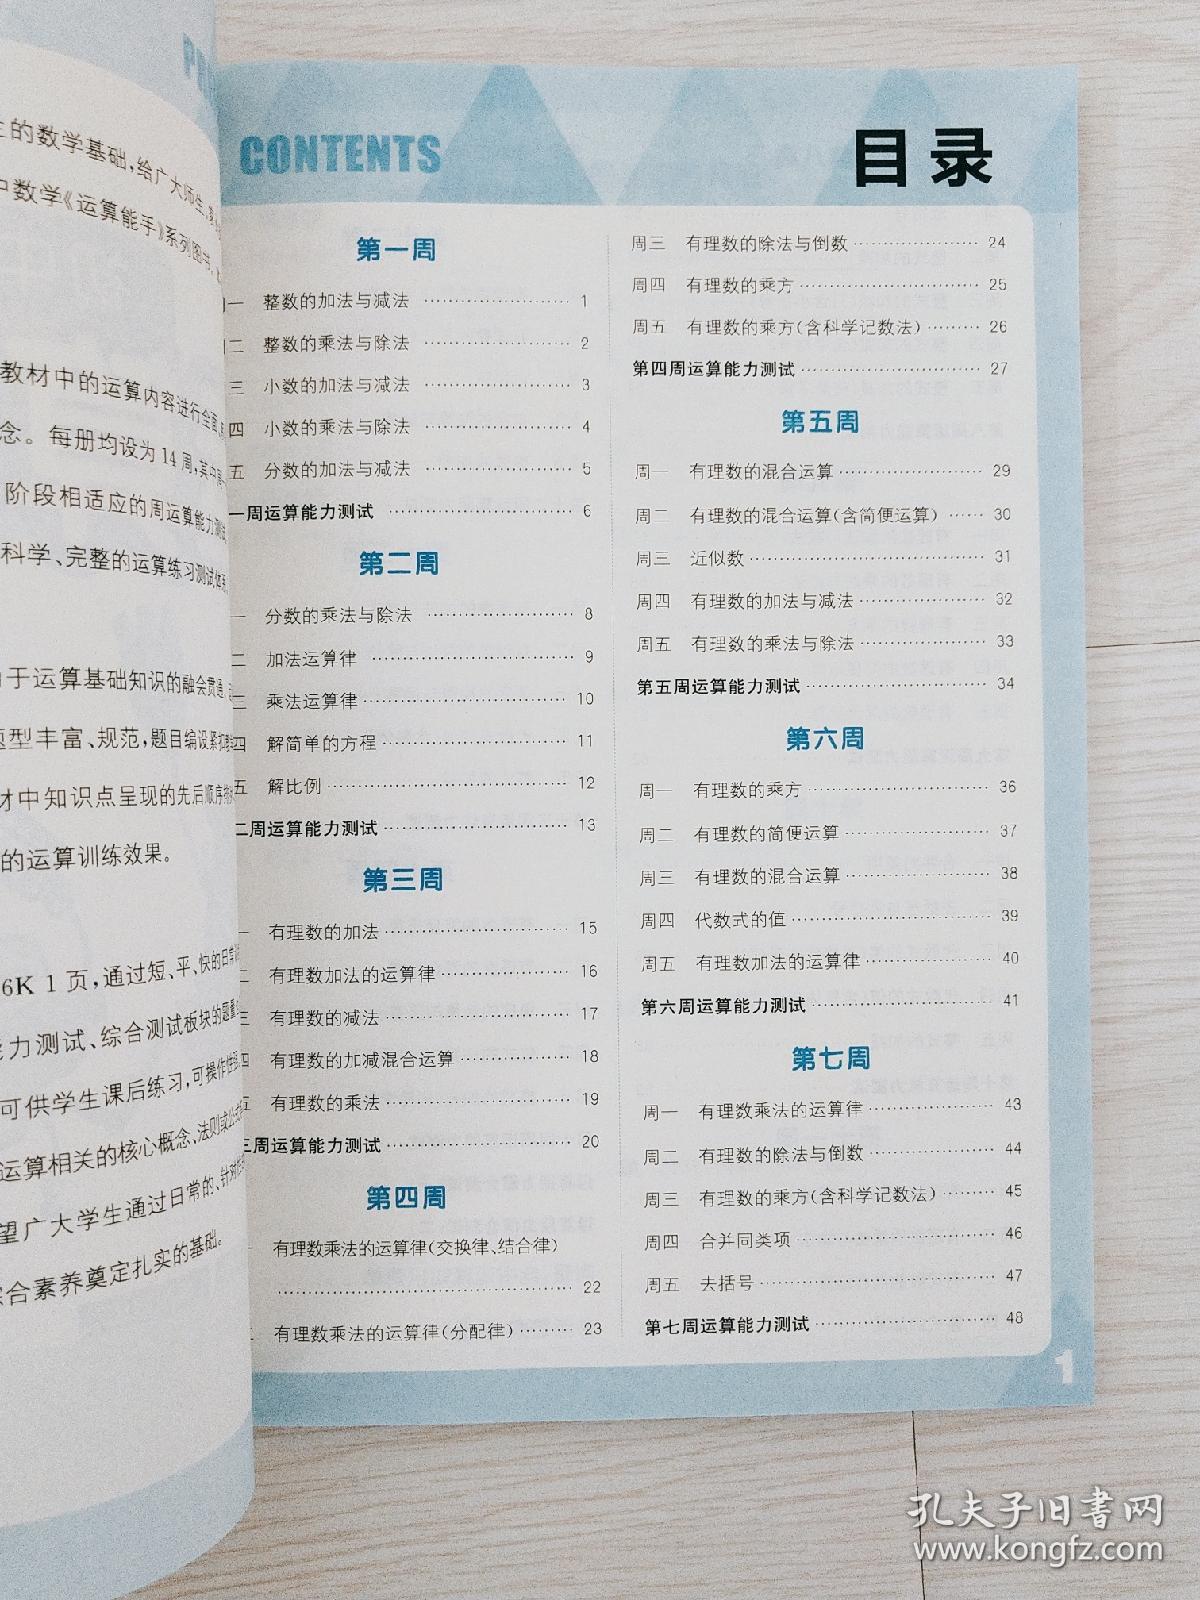 主的数学基础，给广大师生、
中数学《运算能手》系列图书。
教材中的运算内容进行全面
念。每册均设为14周，其中
阶段相适应的周运算能力测试
科学、完整的运算练习测试体系
于运算基础知识的融会贯通
题型丰富、规范，题目编设紧扣
材中知识点呈现的先后顺序
的运算训练效果。
6K 1页，通过短、平、快的日常
力测试、综合测试板块的题量
可供学生课后练习，可操作性
运算相关的核心概念、法则或公式
望广大学生通过日常的、针对性
综合素养奠定扎实的基础。
CONTENTS
目录
第一周
一 整数的加法与减法 …… 1
二 整数的乘法与除法 …… 2
三 小数的加法与减法 …… 3
四 小数的乘法与除法 …… 4
五 分数的加法与减法 …… 5
一周运算能力测试 …… 6
第二周
一 分数的乘法与除法 …… 8
二 加法运算律 …… 9
三 乘法运算律 …… 10
四 解简单的方程 …… 11
五 解比例 …… 12
二周运算能力测试 …… 13
第三周
一 有理数的加法 …… 15
二 有理数加法的运算律 …… 16
三 有理数的减法 …… 17
四 有理数的加减混合运算 …… 18
五 有理数的乘法 …… 19
三周运算能力测试 …… 20
第四周
一 有理数乘法的运算律(交换律、结合律)
…… 22
二 有理数乘法的运算律(分配律) …… 23
周三 有理数的除法与倒数 …… 24
周四 有理数的乘方 …… 25
周五 有理数的乘方(含科学记数法) …… 26
第四周运算能力测试 …… 27
第五周
周一 有理数的混合运算 …… 29
周二 有理数的混合运算(含简便运算) …… 30
周三 近似数 …… 31
周四 有理数的加法与减法 …… 32
周五 有理数的乘法与除法 …… 33
第五周运算能力测试 …… 34
第六周
周一 有理数的乘方 …… 36
周二 有理数的简便运算 …… 37
周三 有理数的混合运算 …… 38
周四 代数式的值 …… 39
周五 有理数加法的运算律 …… 40
第六周运算能力测试 …… 41
第七周
周一 有理数乘法的运算律 …… 43
周二 有理数的除法与倒数 …… 44
周三 有理数的乘方(含科学记数法) …… 45
周四 合并同类项 …… 46
周五 去括号 …… 47
第七周运算能力测试 …… 48
1
孔夫子旧书网
www.kongfz.com